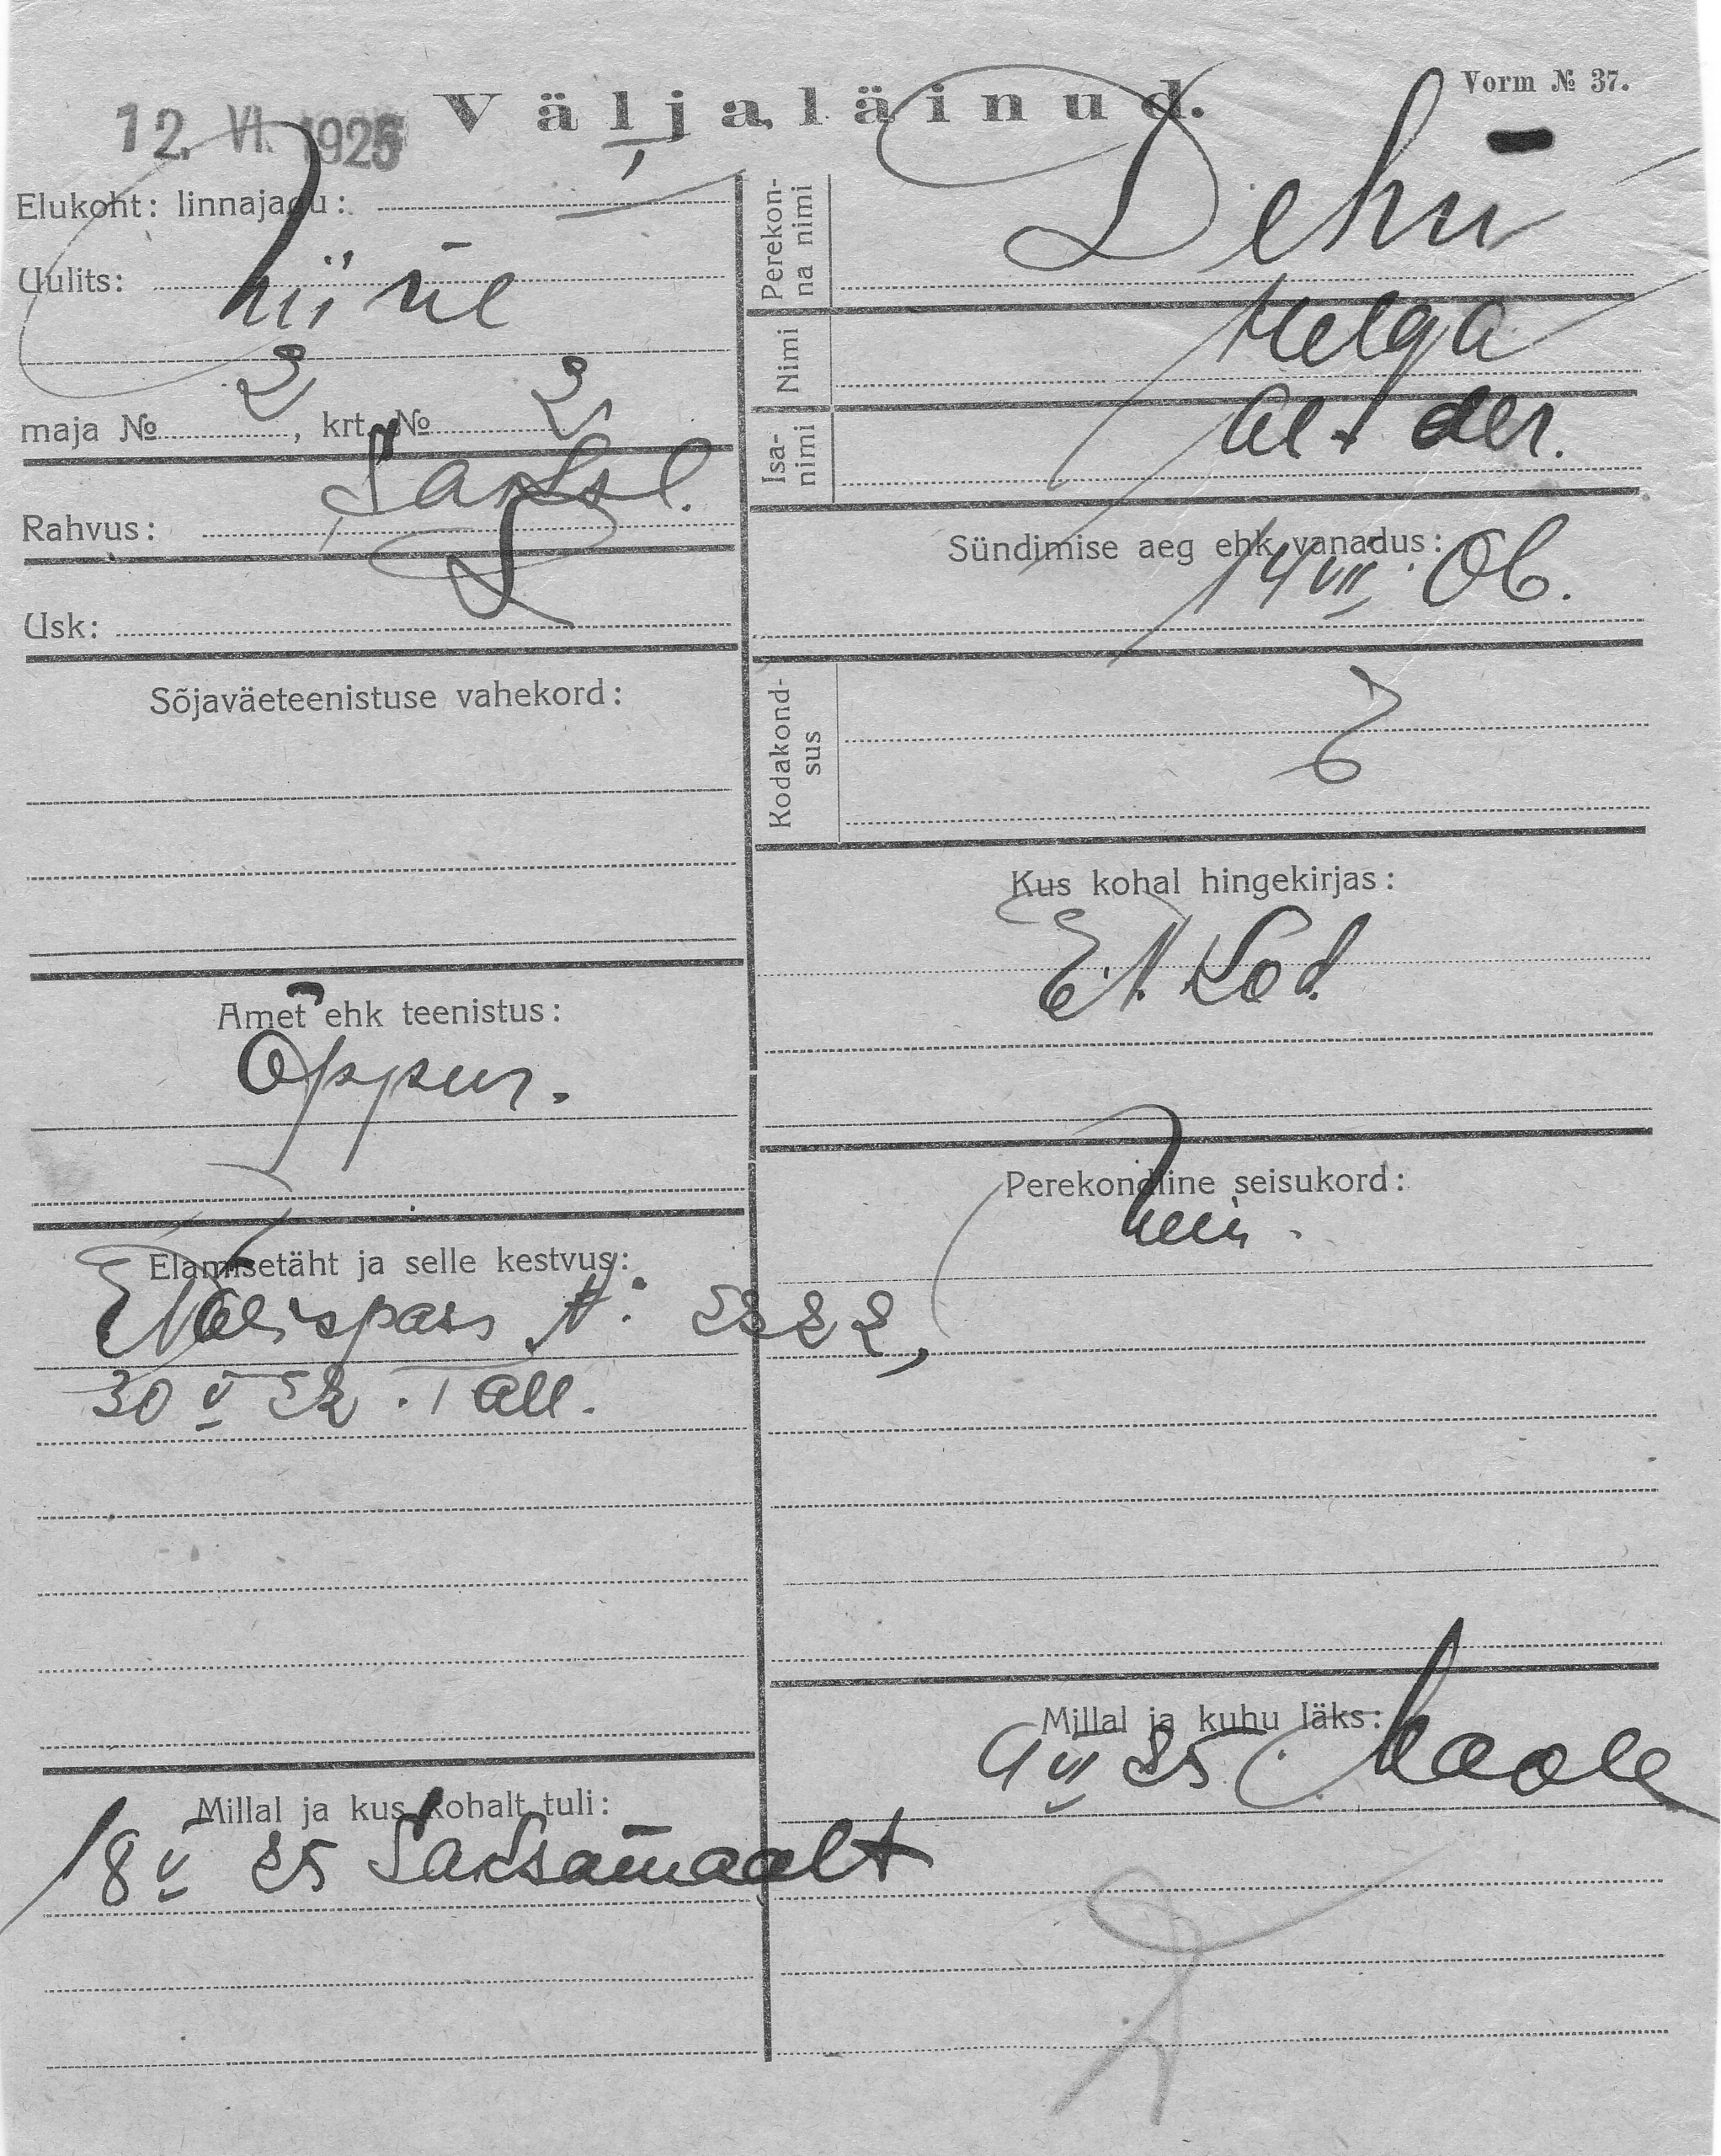 Vorm № 37.
Väljaläinud.
12. VI. 1925
Elukoht: linnajagu: 1
Uulits: Niine
maja № 2, krt. № 2
Rahvus: Saksl.
Usk: L
Sõjaväeteenistuse vahekord:
Amet ehk teenistus:
Õppur.
Elamisetäht ja selle kestvus:
E Välispass №: 2222,
30 V 22. Tall.
Millal ja kus kohalt tuli:
18 V 25 Saksamaalt
Perekonna nimi Dehn
Nimi Helga
Isanimi
Sündimise aeg ehk vanadus:
14 VII. 06.
Kodakondsus E
Kus kohal hingekirjas:
Et. Kod.
Perekondline seisukord:
Millal ja kuhu läks:
9 VI 25